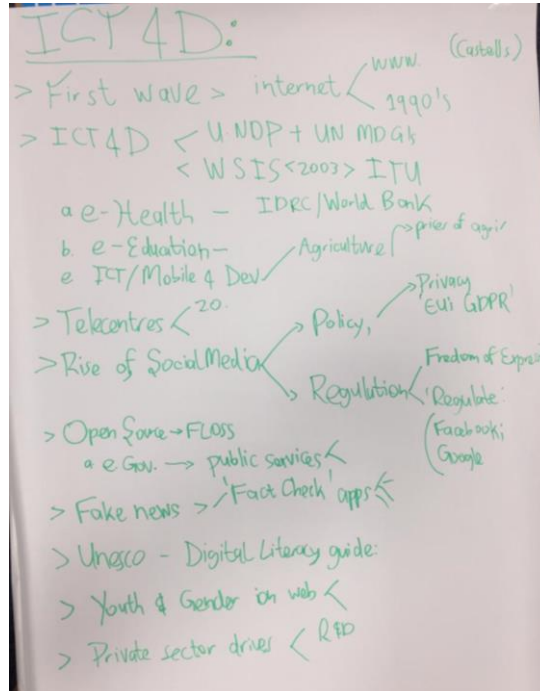 ICT 4D:
(Castells)
> First wave > internet < www.
1990's
> ICT4D < UNDP + UN MDGs
< WSIS <2003> ITU
a e-Health - IDRC/World Bank
b. e-Eduation-
Agriculture → prices of agri
e ICT/Mobile 4 Dev
> Telecentres < 20.
→ Policy,
→ Privacy
'EU; GDPR'
> Rise of Social Media
→ Regulution <
Fredom of Expres
'Regulate:
(Facebook;
Google
> Open Source → FLOSS
a e Gov. → public services <
> Fake news > 'Fact Check' apps
> Unesco - Digital Literacy guide:
> Youth & Gender on web <
> Private sector drives < R&D